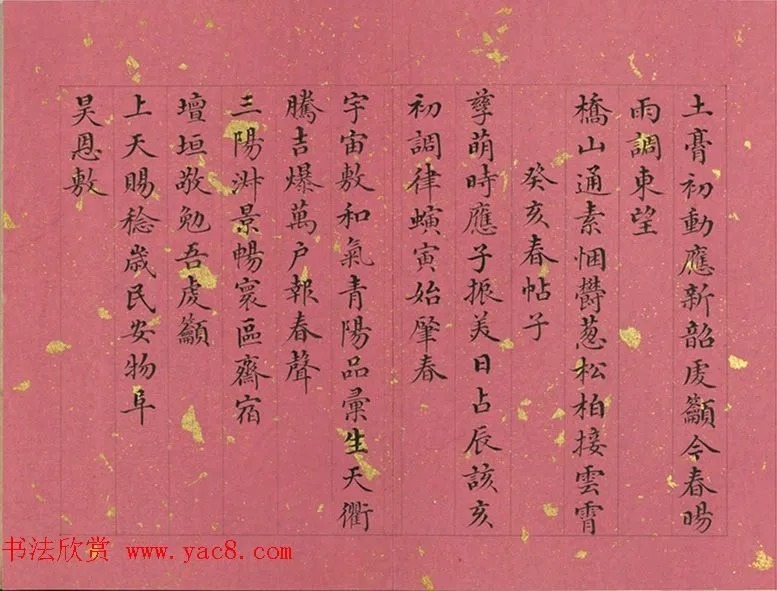 土膏初動應新韶虔籲今春暘
雨調東望
橋山通素悃欝葱松柏接雲霄
癸亥春帖子
孳萌時應子振美日占辰該亥
初調律螾寅始肇春
宇宙敷和氣青陽品彙生天衢
騰吉爆萬户報春聲
三陽淑景暢寰區齋宿
壇垣敬勉吾虔籲
上天賜稔歲民安物阜
昊恩敷
书法欣赏 www.yac8.com